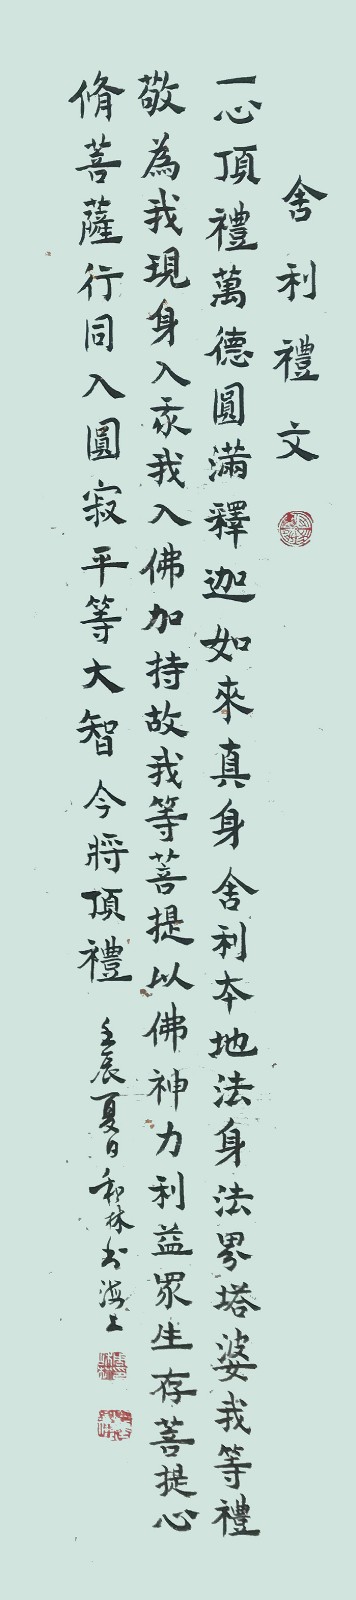 舍利禮文
一心頂禮萬德圓滿釋迦如來真身舍利本地法身法界塔婆我等禮
敬為我現身入我我入佛加持故我等菩提以佛神力利益眾生存菩提心
脩菩薩行同入圓寂平等大智今將頂禮
壬辰夏日和林书海上